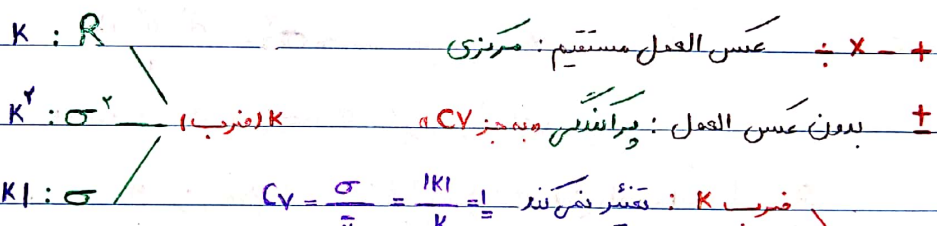 + - × ÷ عکس العمل مستقیم : مرکزی K : R
± بدون عکس العمل : پراکندگی «به جز CV» K(ضرب) K² : σ²
ضرب K : تغییر نمی کند CV = σ/x̄ = |K|/K = 1 |K| : σ